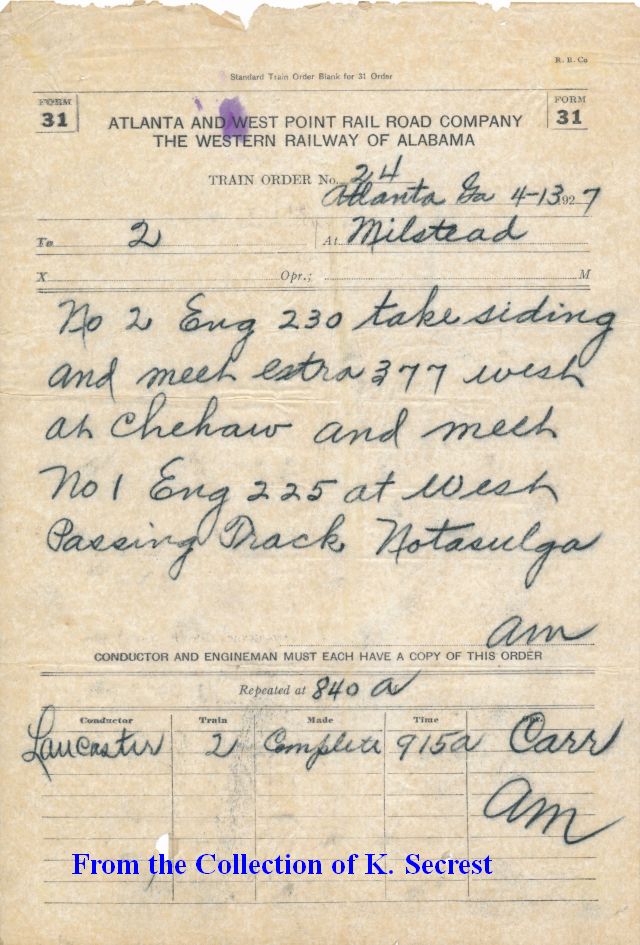 R. B. Co
Standard Train Order Blank for 31 Order
FORM 31
FORM 31
ATLANTA AND WEST POINT RAIL ROAD COMPANY
THE WESTERN RAILWAY OF ALABAMA
TRAIN ORDER No. 24
Atlanta Ga 4-13 1927
To 2 At Milstead
X Opr.; M
No 2 Eng 230 take siding
and meet extra 377 west
at Chehaw and meet
No 1 Eng 225 at West
Passing Track Notasulga
am
CONDUCTOR AND ENGINEMAN MUST EACH HAVE A COPY OF THIS ORDER
Repeated at 840 a
Conductor Train Made Time Opr.
Lancaster 2 Complete 915a Carr
am
From the Collection of K. Secrest